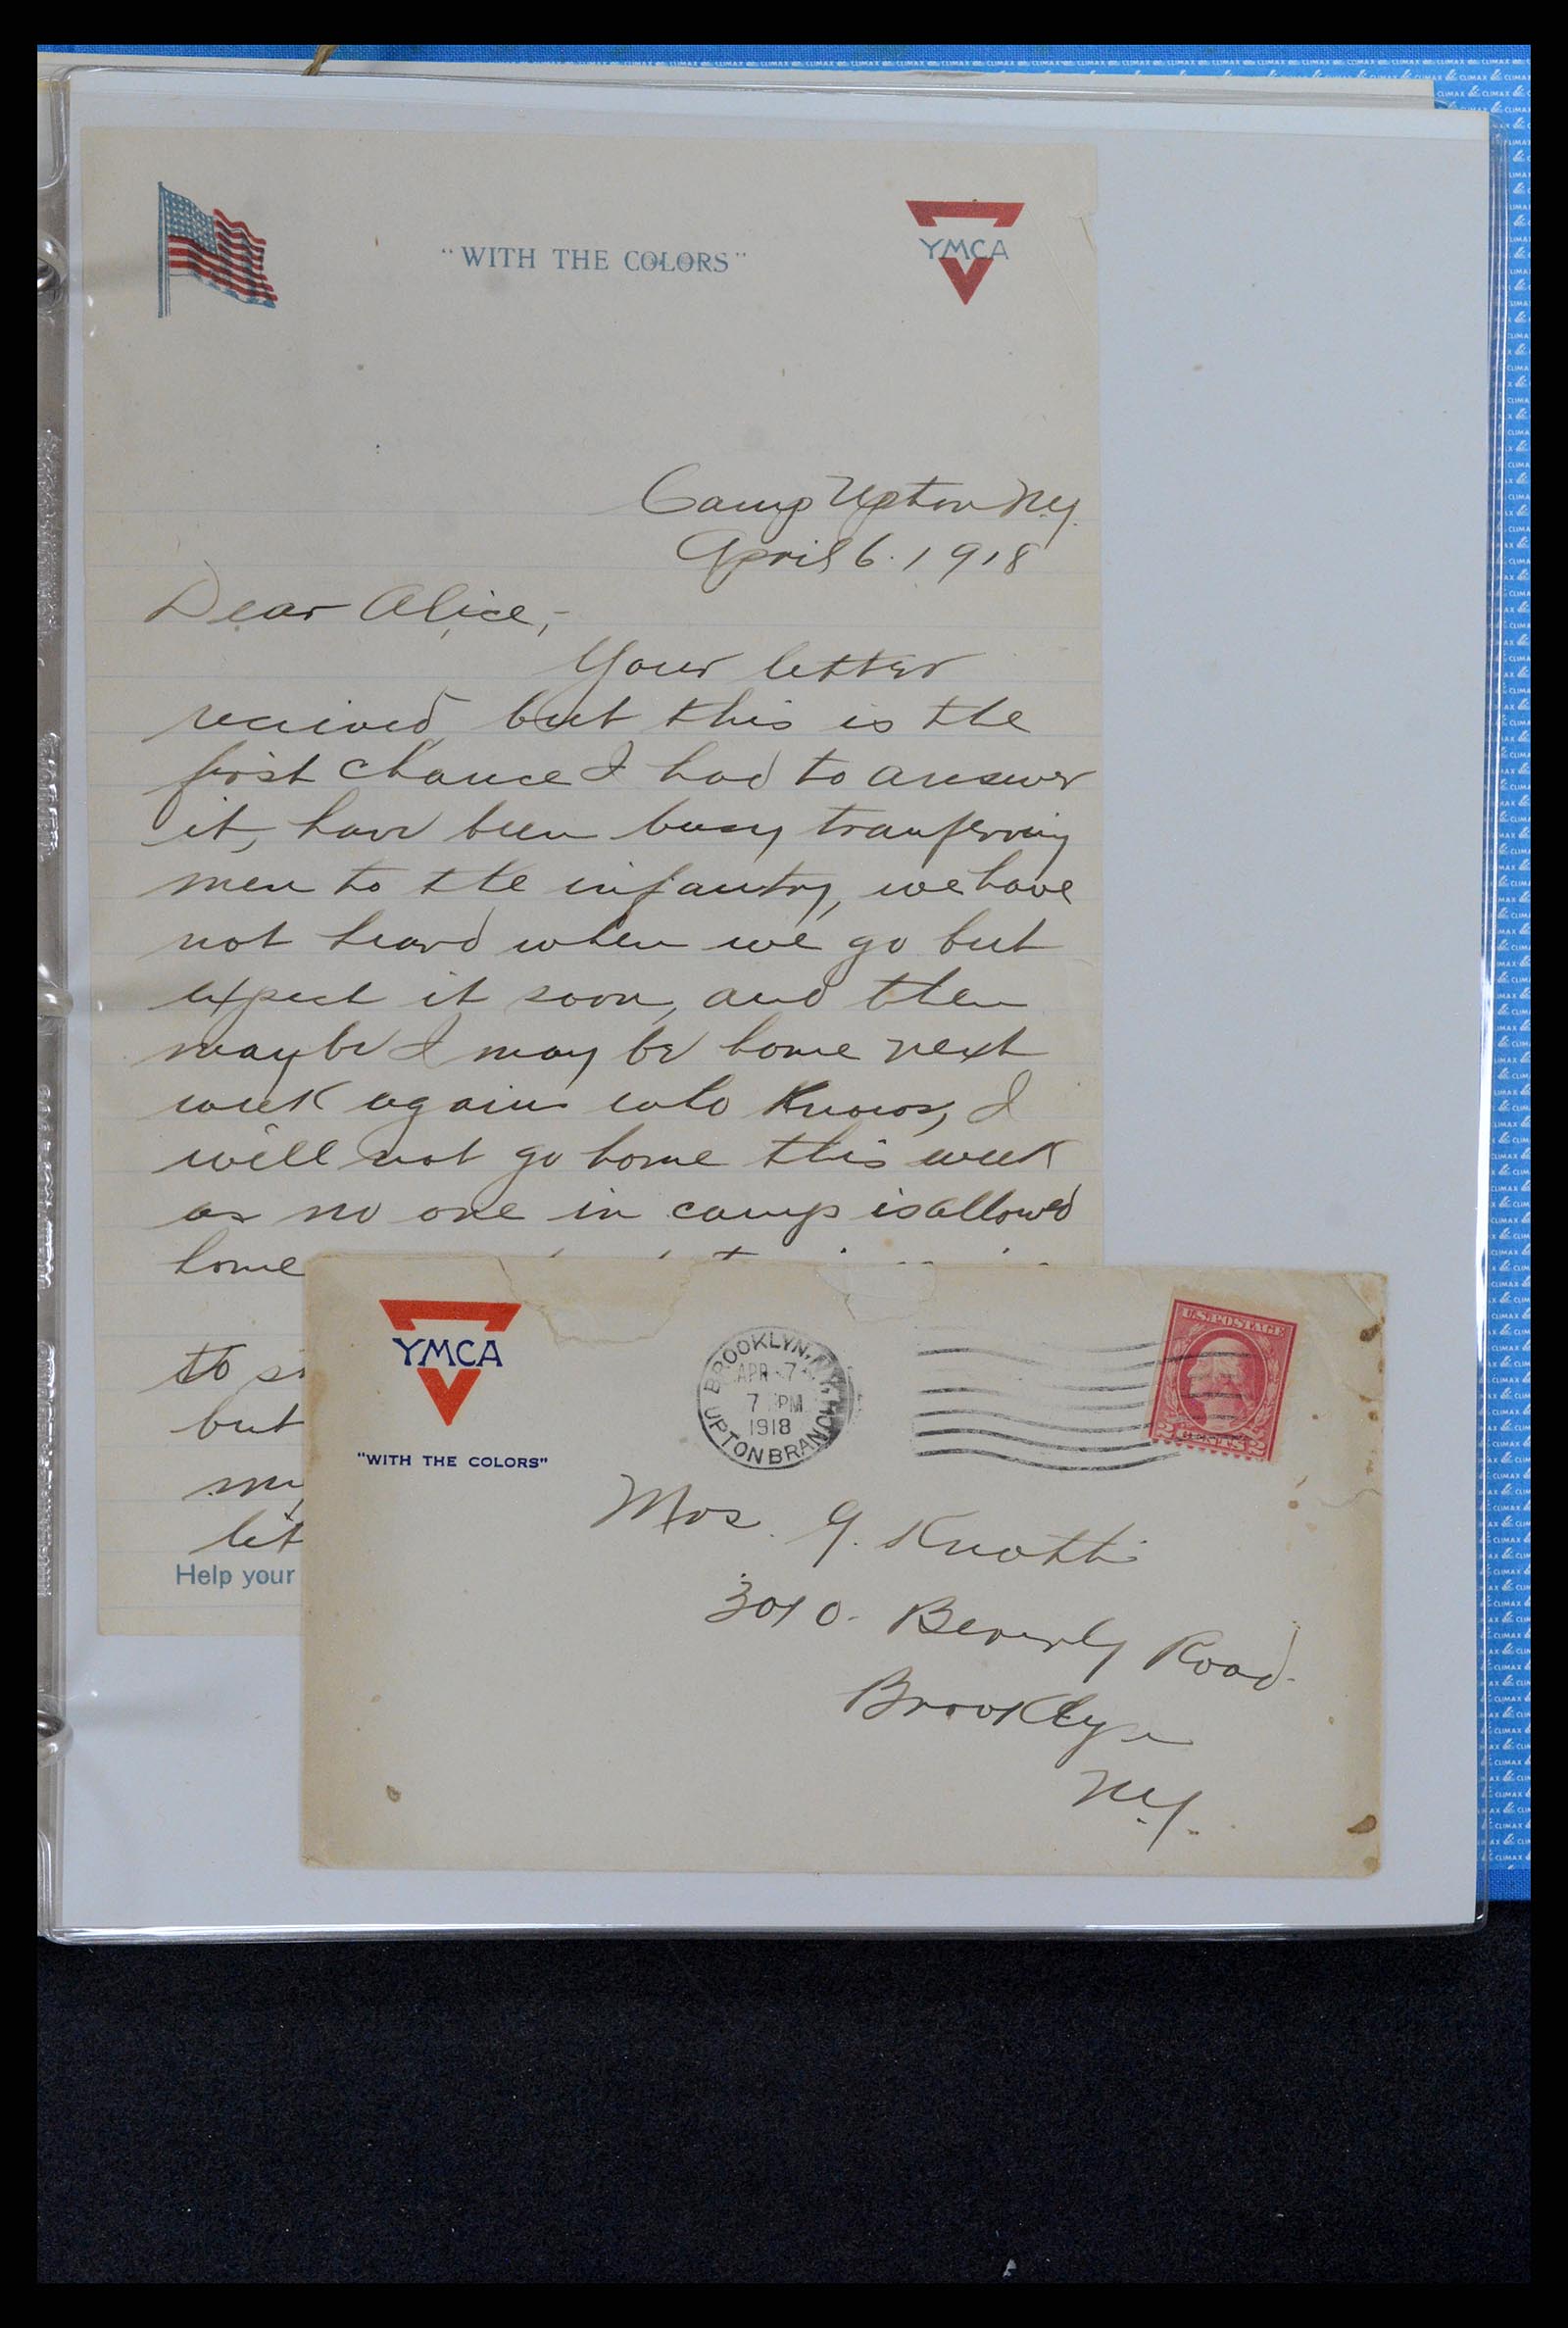 "WITH THE COLORS"
YMCA
Camp Upton N.Y.
April 6. 1918
Dear Alice,-
Your letter
recieved, but this is the
first chance I had to answer
it, have been busy tranferring
men to the infantry, we have
not heard when we go but
expect it soon, and then
maybe I may be home next
week again who knows, I
will not go home this week
as no one in camp is allowed
home
to
but
my
let
Help your
YMCA
"WITH THE COLORS"
BROOKLYN, N.Y.
APR 7
7 PM
1918
UPTON BRANCH
U.S. POSTAGE
2 CENTS 2
Mrs. G. Knott
3010. Beverly Road.
Brooklyn
N.Y.
CLIMAX